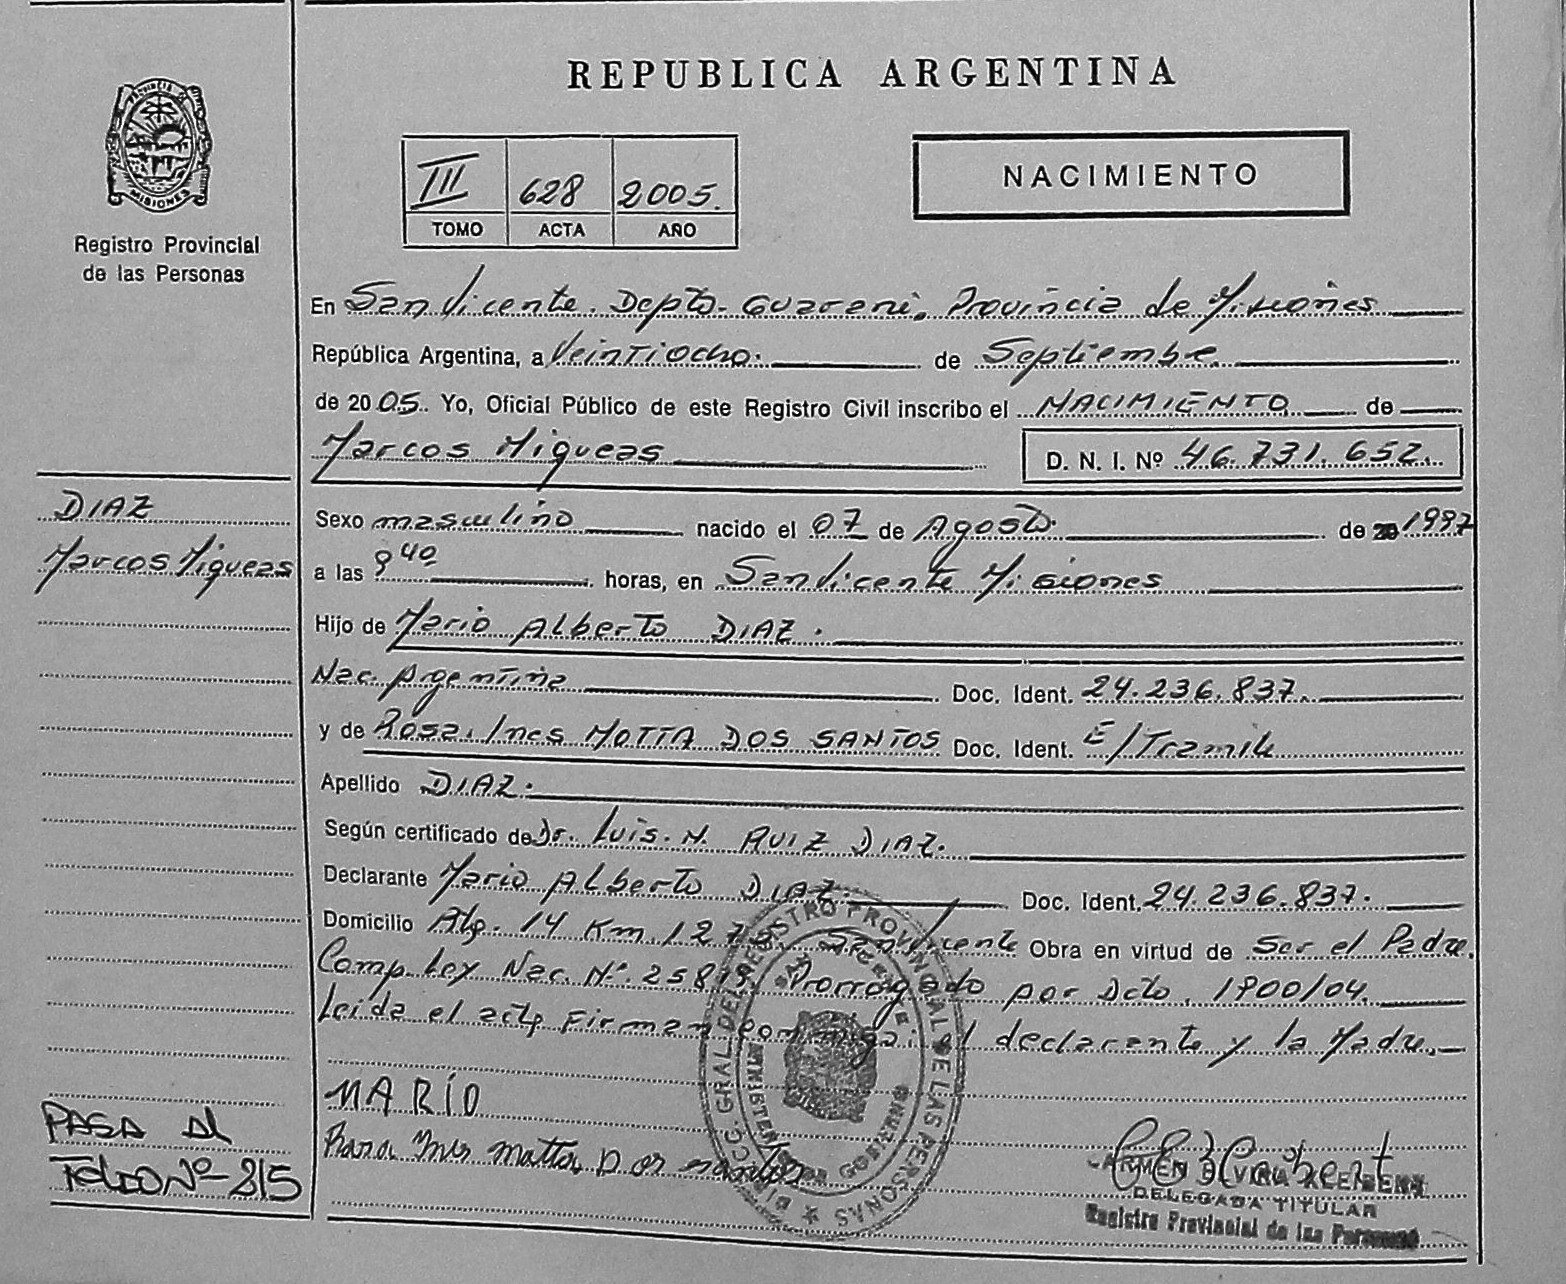 REPUBLICA ARGENTINA
PROVINCIA DE
MISIONES
Registro Provincial
de las Personas
III 628 2005.
TOMO ACTA AÑO
NACIMIENTO
En San Vicente. Depto. Guarani. Provincia de Misiones
República Argentina, a Veintiocho. de Septiembre
de 2005. Yo, Oficial Público de este Registro Civil inscribo el NACIMIENTO de
Marcos Miqueas D. N. I. Nº 46.731.652.
DIAZ
Marcos Miqueas
Sexo masculino nacido el 07 de Agosto. de 1997
a las 8 40 horas, en San Vicente Misiones
Hijo de Mario Alberto DIAZ.
Nac. Argentina Doc. Ident. 24.236.837.
y de Rosa Ines MOTTA DOS SANTOS Doc. Ident. E/Tramite
Apellido DIAZ.
Según certificado de Dr. Luis. N. RUIZ DIAZ.
Declarante Mario Alberto DIAZ. Doc. Ident. 24.236.837.
Domicilio 14 Km. San Vicente Obra en virtud de Ser el Padre.
Comp. Ley Nac. Nº 25819. Prorrogado por Dcto. 1900/04.
Leida el acta Firman conmigo: el declarante y la Madre.
MARÍO
PASA Al
FOLIO Nº 815
GRAL. DEL REGISTRO PROVINCIAL DE LAS PERSONAS
SAN VICENTE
MINISTERIO DE GOBIERNO
DELEGADA TITULAR
Registro Provincial de las Personas